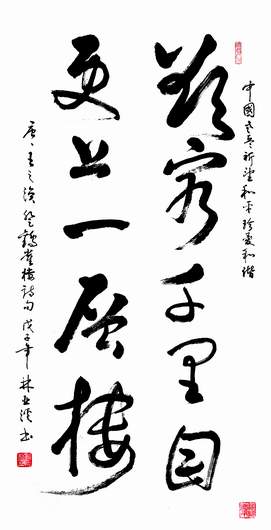 中國老兵祈望和平珍爱和谐
欲窮千里目
更上一层楼
唐王之涣登鹳雀楼诗句戊子年林书